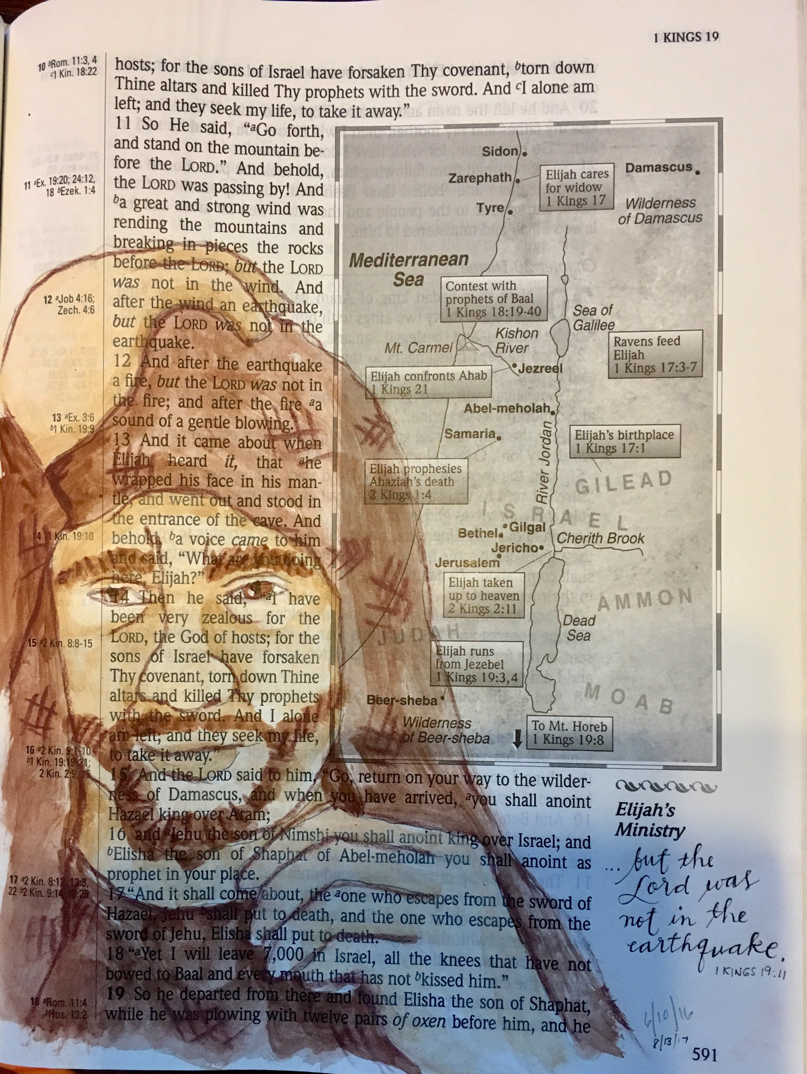 1 KINGS 19
10 ªRom. 11:3, 4
ᶜ1 Kin. 18:22
hosts; for the sons of Israel have forsaken Thy covenant, ᵇtorn down
Thine altars and killed Thy prophets with the sword. And ᶜI alone am
left; and they seek my life, to take it away.”
11 So He said, “ªGo forth,
and stand on the mountain be-
fore the LORD.” And behold,
11 ªEx. 19:20; 24:12,
18 ᵇEzek. 1:4
the LORD was passing by! And
ᵇa great and strong wind was
rending the mountains and
breaking in pieces the rocks
before the LORD; but the LORD
was not in the wind. And
12 ªJob 4:16;
Zech. 4:6
after the wind an earthquake,
but the LORD was not in the
earthquake.
12 And after the earthquake
a fire, but the LORD was not in
the fire; and after the fire ªa
sound of a gentle blowing.
13 ªEx. 3:6
ᵇ1 Kin. 19:9
13 And it came about when
Elijah heard it, that ªhe
wrapped his face in his man-
tle, and went out and stood in
the entrance of the cave. And
1 Kin. 19:10
behold, ᵇa voice came to him
and said, “What are you doing
here, Elijah?”
14 Then he said, “ªI have
been very zealous for the
LORD, the God of hosts; for the
15 ª2 Kin. 8:8-15
sons of Israel have forsaken
Thy covenant, torn down Thine
altars and killed Thy prophets
with the sword. And I alone
am left; and they seek my life,
to take it away.”
16 ª2 Kin. 9:1-10
ᵇ1 Kin. 19:19-21;
2 Kin. 2:9
15 And the LORD said to him, “Go, return on your way to the wilder-
ness of Damascus, and when you have arrived, ªyou shall anoint
Hazael king over Aram;
16 and ªJehu the son of Nimshi you shall anoint king over Israel; and
ᵇElisha the son of Shaphat of Abel-meholah you shall anoint as
prophet in your place.
17 ª2 Kin. 8:12
22 ᵇ2 Kin. 9:14
17 “And it shall come about, the ªone who escapes from the sword of
Hazael, Jehu ᵇshall put to death, and the one who escapes from the
sword of Jehu, Elisha shall put to death.
18 “ªYet I will leave 7,000 in Israel, all the knees that have not
bowed to Baal and every mouth that has not ᵇkissed him.”
18 ªRom. 11:4
ᵇHos. 13:2
19 So he departed from there and found Elisha the son of Shaphat,
while he was plowing with twelve pairs of oxen before him, and he
Sidon
Damascus
Zarephath
Elijah cares
for widow
1 Kings 17
Tyre
Wilderness
of Damascus
Mediterranean
Sea
Contest with
prophets of Baal
1 Kings 18:19-40
Sea of
Galilee
Mt. Carmel
Kishon
River
Ravens feed
Elijah
1 Kings 17:3-7
Jezreel
Elijah confronts Ahab
1 Kings 21
Abel-meholah
Samaria
Elijah's birthplace
1 Kings 17:1
Elijah prophesies
Ahaziah's death
2 Kings 1:4
River Jordan
GILEAD
ISRAEL
Bethel
Gilgal
Cherith Brook
Jericho
Jerusalem
Elijah taken
up to heaven
2 Kings 2:11
AMMON
Dead
Sea
JUDAH
Elijah runs
from Jezebel
1 Kings 19:3,4
MOAB
Beer-sheba
Wilderness
of Beer-sheba
To Mt. Horeb
1 Kings 19:8
Elijah's
Ministry
...but the
Lord was
not in the
earthquake.
1 KINGS 19:11
6/10/16
8/13/17
591